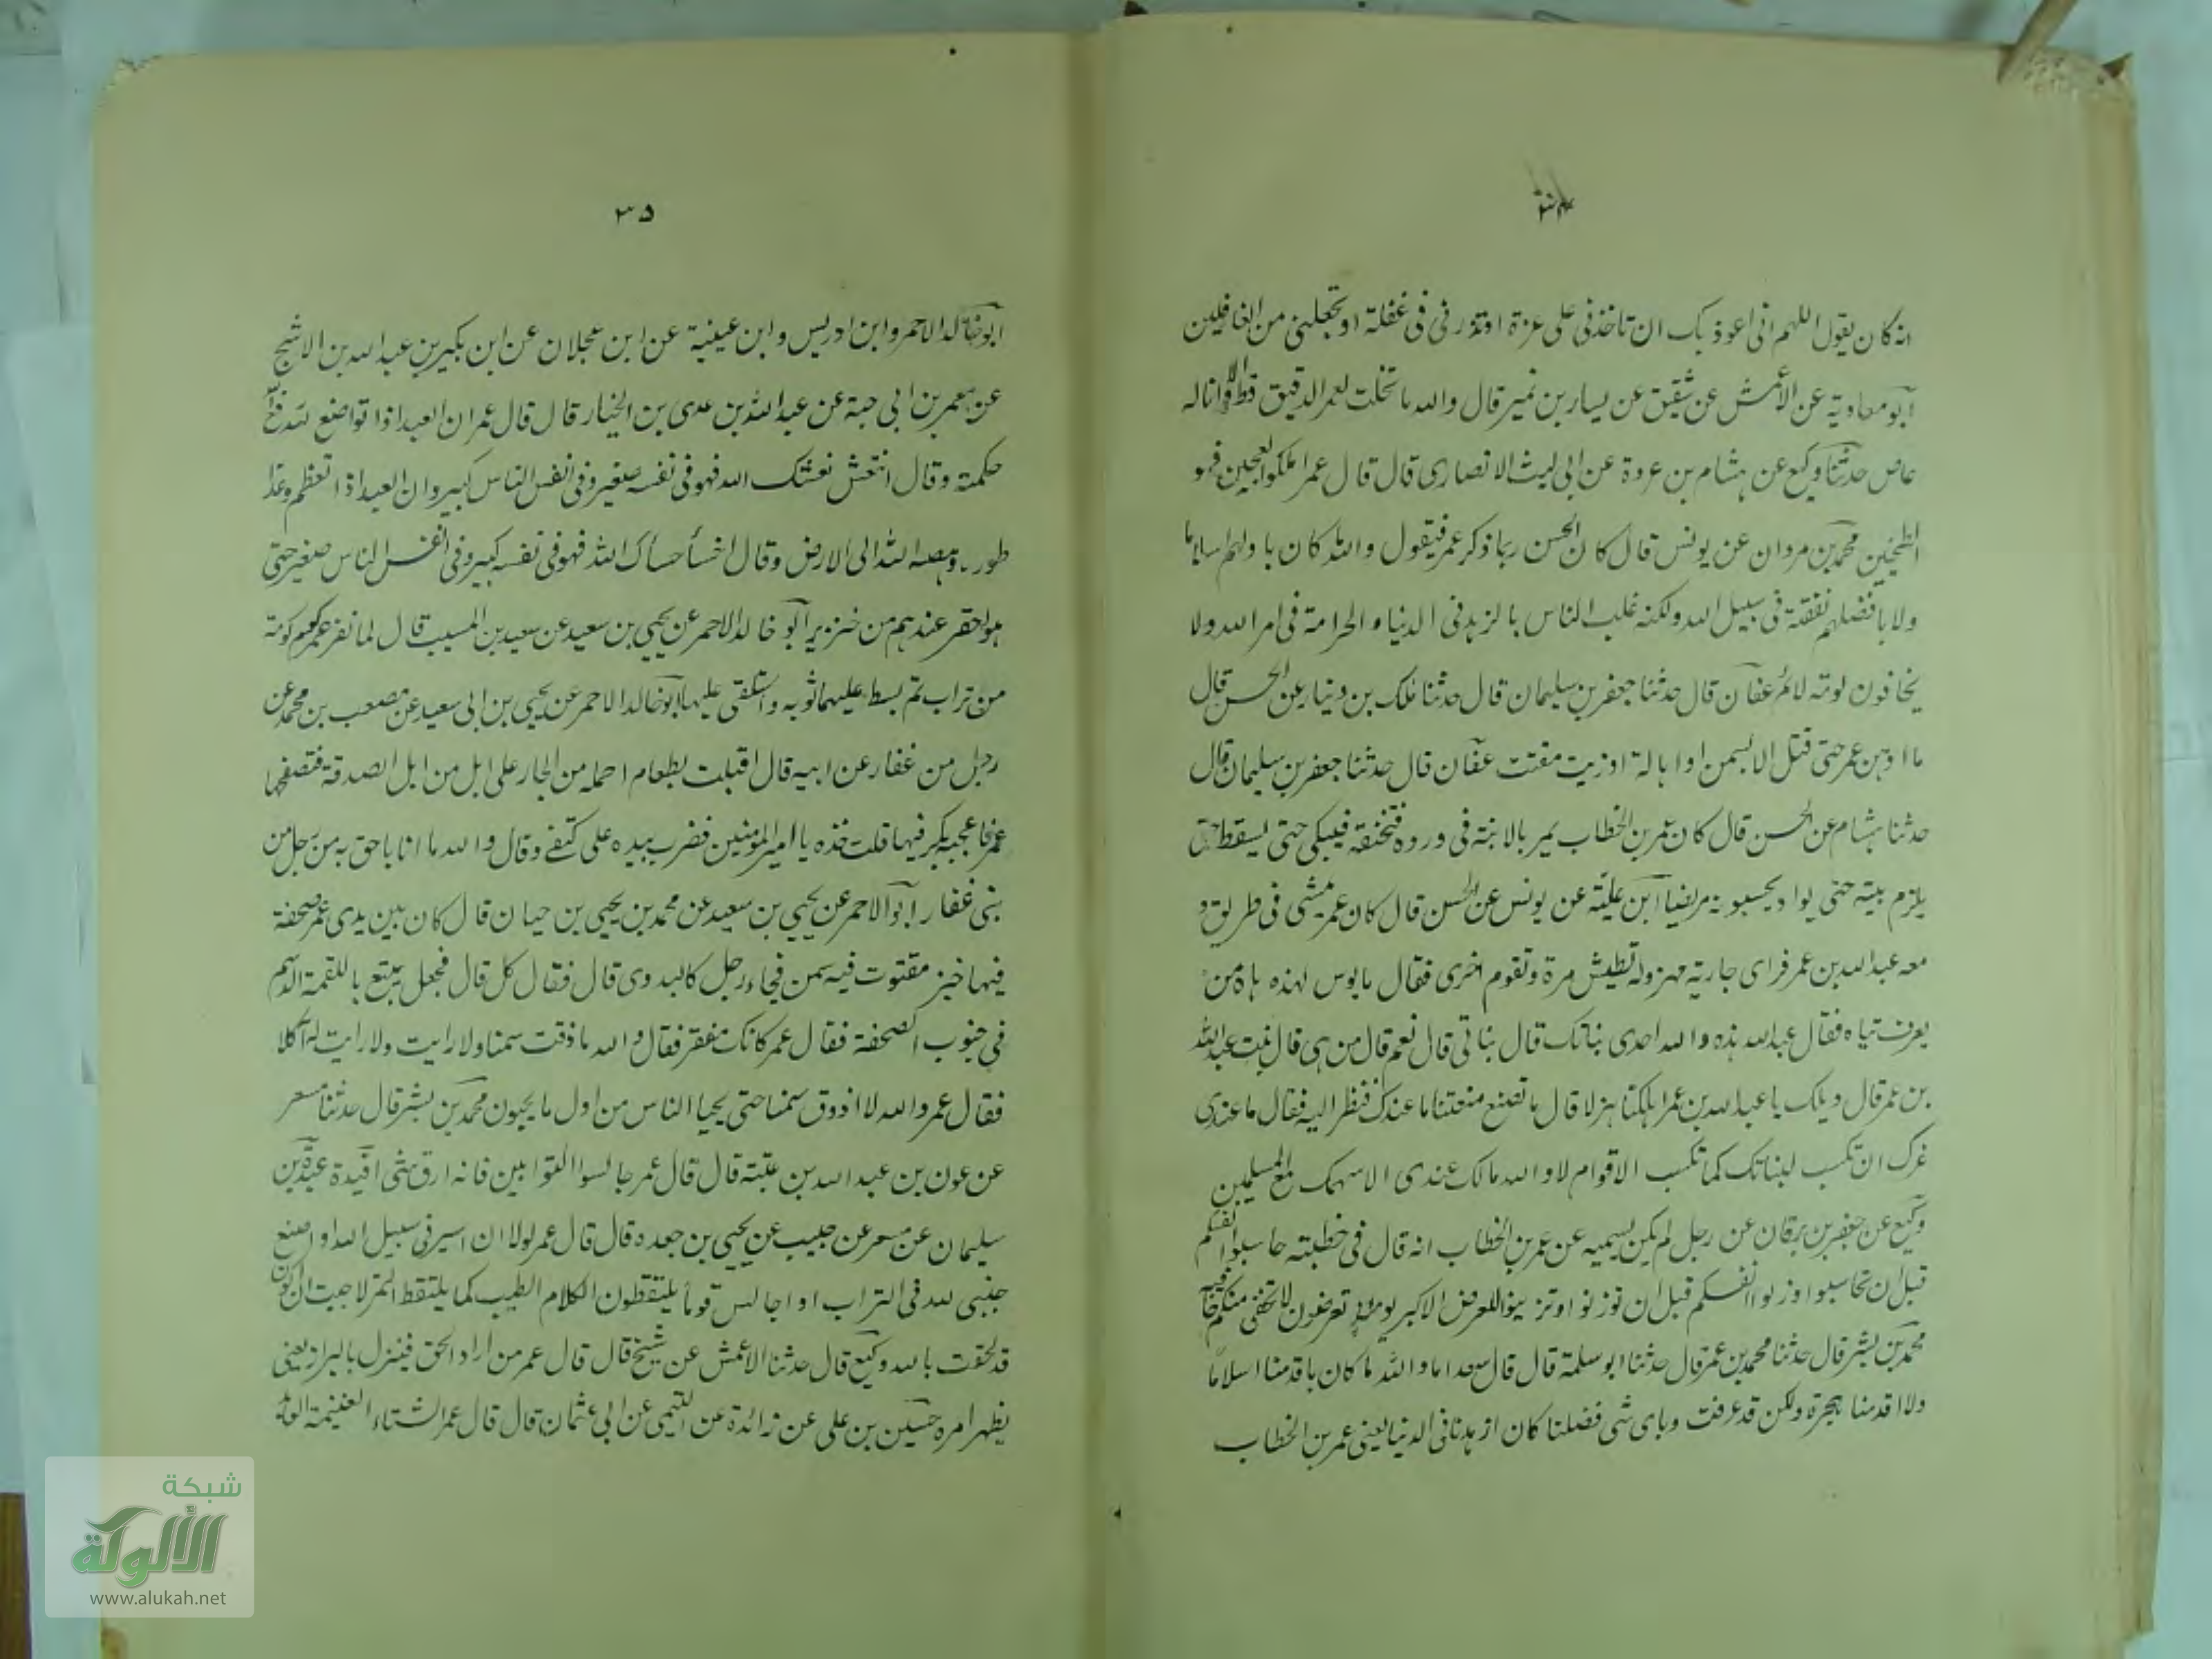 انه كان يقول اللهم انى اعوذ بك ان تاخذنى على غرة او تذرنى فى غفلة او تجعلنى من الغافلين
ابو معاوية عن الأعمش عن شقيق عن يسار بن نمير قال والله ما نخلت لعمر الدقيق قط الا وانا له
عاص حدثنا وكيع عن هشام بن عروة عن ابى ليث الانصارى قال قال عمر املكوا العجين فهو
الطحنين محمد بن مروان عن يونس قال كان الحسن ربما ذكر عمر فيقول والله ما كان باولهم اسلاما
ولا بافضلهم نفقة فى سبيل الله ولكنه غلب الناس بالزهد فى الدنيا و الحرامة فى امر الله ولا
يخافون لومة لائم عفان قال حدثنا جعفر بن سليمان قال حدثنا ملك بن دينار عن الحسن قال
ما ادهن عمر حتى قتل الا بسمن او اهالة او زيت مفتت عفان قال حدثنا جعفر بن سليمان قال
حدثنا هشام عن الحسن قال كان عمر بن الخطاب يمر بالاية فى ورده فتخنقه فيبكى حتى يسقط حتى
يلزم بيته حتى يواد يحسبونه مريضا ابن علية عن يونس عن الحسن قال كان عمر يمشى فى طريق و
معه عبد الله بن عمر فراى جارية مهزولة تطيش مرة وتقوم اخرى فقال ما بوس لهذه هاه من
يعرف تياه فقال عبد الله هذه والله احدى بناتك قال بناتى قال نعم قال من هى قال بنت عبد الله
بن عمر قال ويلك يا عبد الله بن عمر اهلكتها هزلا قال ما نصنع منعتنا ما عندك فنظر اليه فقال ما عندى
غرك ان تكسب لبناتك كما تكسب الاقوام لا والله مالك عندى الا سهمك مع المسلمين
وكيع عن جعفر بن برقان عن رجل لم يكن يسميه عن عمر بن الخطاب انه قال فى خطبته حاسبوا انفسكم
قبل ان تحاسبوا وزنوا انفسكم قبل ان توزنوا وتزينوا للعرض الاكبر يومئذ تعرضون لا تخفى منكم خافية
محمد بن بشر قال حدثنا محمد بن عمر قال حدثنا ابو سلمة قال قال سعد اما والله ما كان باقدمنا اسلاما
ولا اقدمنا هجرة ولكن قد عرفت وباى شى فضلنا كان ازهدنا فى الدنيا يعنى عمر بن الخطاب
٣٥
ابو خالد الاحمر وابن ادريس وابن عيينة عن ابن عجلان عن ابن بكير بن عبد الله بن الاشج
عن معمر بن ابى حبة عن عبد الله بن عدى بن الخيار قال قال عمر ان العبد اذا تواضع لله رفع
حكمته وقال انتعش نعشك الله فهو فى نفسه صغير وفى انفس الناس كبير وان العبد اذا تعظم وعدا
طوره وهصه الله الى الارض وقال اخسأ خسأك الله فهو فى نفسه كبير وفى انفس الناس صغير حتى
هو احقر عندهم من خنزير ابو خالد الاحمر عن يحيى بن سعيد عن سعيد بن المسيب قال لما نفر عمر كوم كومة
من تراب ثم بسط عليها ثوبه واستلقى عليها ابو خالد الاحمر عن يحيى بن ابى سعيد عن مصعب بن محمد عن
رجل من غفار عن ابيه قال اقبلت بطعام احمله من الجار على ابل من ابل الصدقة فتصفحها
عمر فاعجبه بكر فيها قلت خذه يا امير المومنين فضرب بيده على كتفى وقال والله ما انا باحق به من رجل من
بنى غفار ابو الاحمر عن يحيى بن سعيد عن محمد بن يحيى بن حيان قال كان بين يدى عمر صحفة
فيها خبز مفتوت فيه سمن فجاء رجل كالبدوى قال فقال كل قال فجعل يتبع باللقمة الدسم
فى جنوب الصحفة فقال عمر كانك مفقر فقال والله ما ذقت سمنا ولا رايت ولا رايت له آكلا
فقال عمر والله لا اذوق سمنا حتى يحيا الناس من اول ما يحيون محمد بن بشر قال حدثنا مسعر
عن عون بن عبد الله بن عتبة قال قال عمر جالسوا التوابين فانه ارق شى افيدة عبدة بن
سليمان عن مسعر عن حبيب عن يحيى بن جعده قال قال عمر لولا ان اسير فى سبيل الله او اضع
جنبى لله فى التراب او اجالس قوما يلتقطون الكلام الطيب كما يلتقط التمر لاحببت ان اكون
قد لحقت بالله وكيع قال حدثنا الاعمش عن شيخ قال قال عمر من اراد الحق فينزل بالبراز يعنى
يظهر امره حسين بن على عن زائدة عن التيمى عن ابى عثمان قال قال عمر الشتاء الغنيمة
شبكة
الألوكة
www.alukah.net